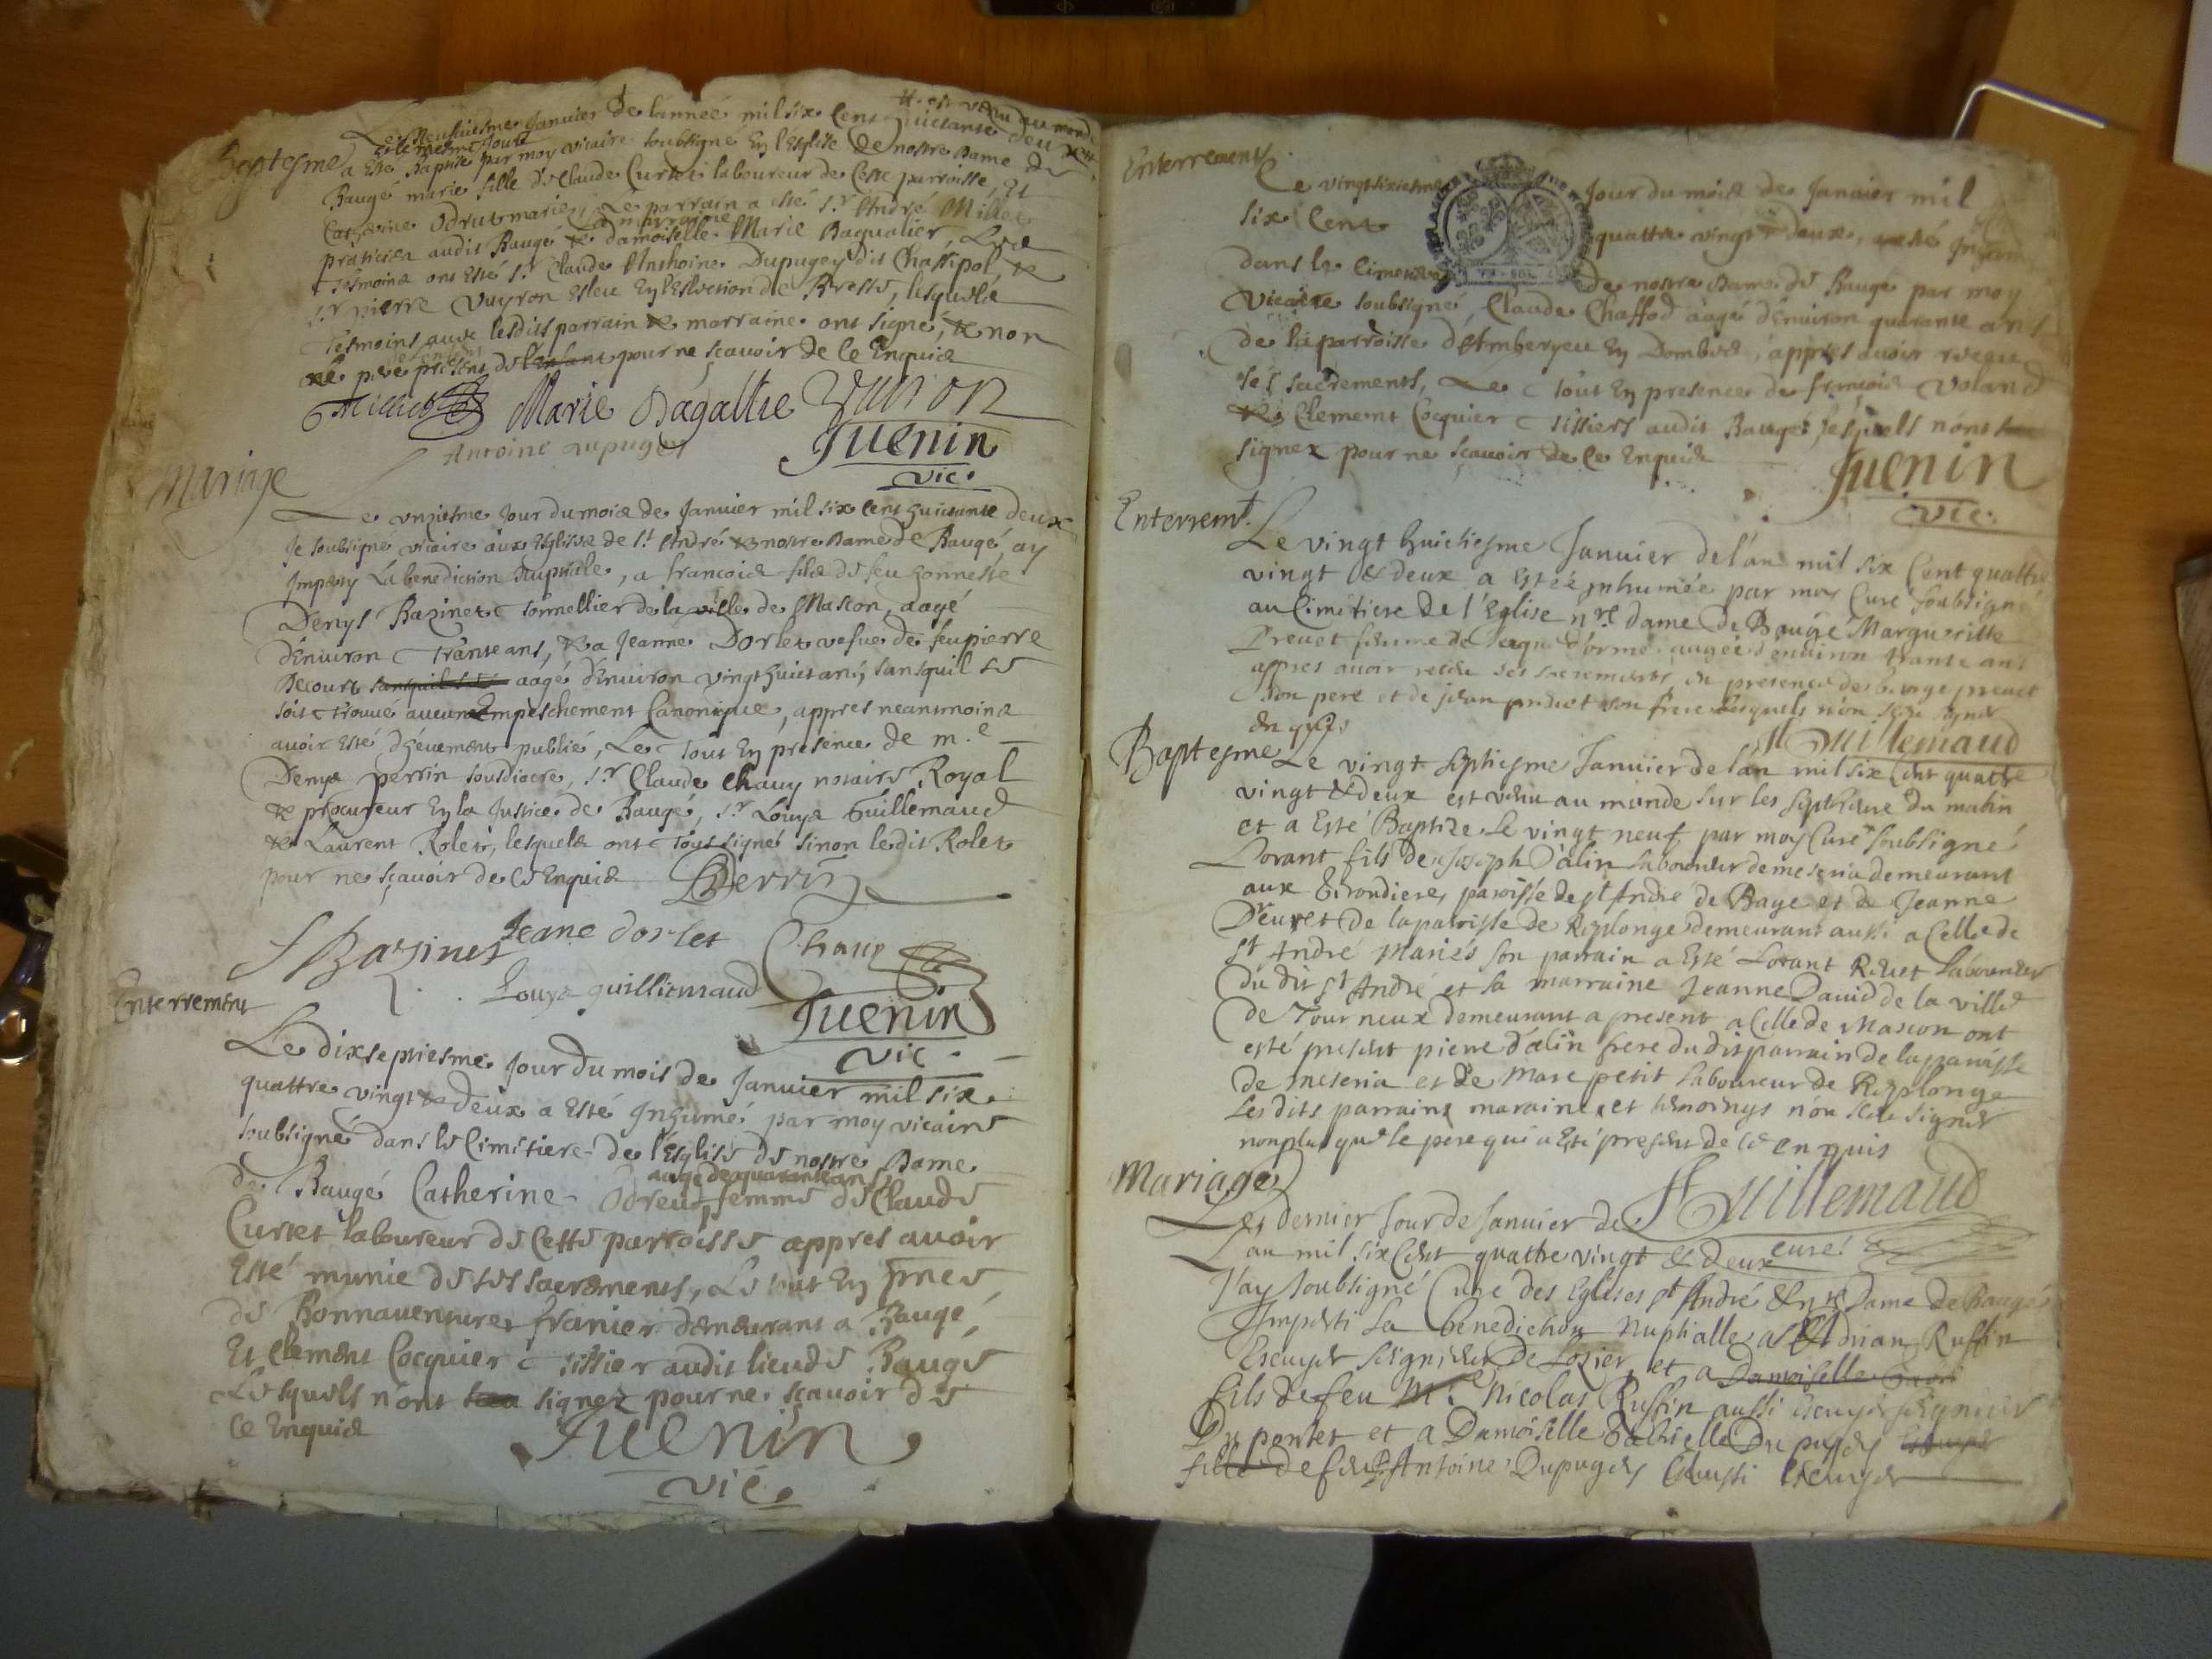 Baptesme
Le neufuiesme Januier de lannée mil six cent huictante deux est venu au monde
et le mesme jour
a esté Baptisé par moy vicaire soubsigné En l'Esglise de nostre Dame de
Baugé marie fille de Claude Curtet laboureur de Cette parroisse, Et
Catherine Odrut mariez, Le parrain a esté s.r André Millet
praticien audit Baugé & La marraine damoiselle Marie Bagualier, Les
tesmoins ont esté s.r Claude Anthoine Dupugey dit Chassipol, &
s.r pierre Vuyron Esleu En l'Eslection de Bresse, lesquels
tesmoins auec lesdits parrain & marraine ont signé, & non
le pere present de l'enfant pour ne scauoir de ce Enquis
Millet Marie Bagallie Vuiron
Antoine dupuget
Juenin
vic.
Mariage
Le vnziesme jour du mois de Januier mil six cent huictante deux
Je soubsigné vicaire aux Esglises de S.t André & nostre Dame de Baugé, ay
Imparty La benediction Nuptiale, a francois fils de feu honneste
Denys Bazinet tonnellier de la ville de Mascon, aagé
d'Enuiron trante ans, & a Jeanne Dorlet vefue de feu pierre
Decourt aagé d'Enuiron vingt huict ans, sans quil se
soit trouué aucun Empeschement Canonique, appres neantmoins
auoir esté d'hëuement publié, Le tout En presence de m.e
Denys perrin sousdiacre, s.r Claude Chauy notaire Royal
& procureur En la Justice de Baugé, s.r Louys Guillemaud
& Laurent Rolet, lesquels ont tous signé sinon ledit Rolet
pour ne sçauoir de ce Enquis Perrin
f Bazinet Jeane dorlet Chauy
Louys guilliemaud
Juenin
vic.
Enterrement
Le dixseptiesme jour du mois de Januier mil six
quattre vingt & deux a esté Inhumé par moy vicaire
soubsigné dans le Cimitiere de l'Esglise de nostre Dame
aagé de quarante ans
de Baugé Catherine Odreut femme de Claude
Curtet laboureur de Cette parroisse appres auoir
Esté munie de ses sacrements, Le tout En pnce
de Bonnauenture franier demeurant a Baugé,
Et Clement Cocquier tissier audit lieu de Baugé
Lesquels n'ont signez pour ne sçauoir de
ce Enquis
Juenin
vic.
Enterrement
Le vingtsixiesme jour du mois de Januier mil
six Cent quattre vingt deux, a esté Inhumé
dans le Cimetiere de nostre Dame de Baugé par moy
vicaire soubsigné, Claude Chaffod aagé d'enuiron quarante ans
de la parroisse d'Ambeyrieu En Dombes, appres auoir receu
ses sacrements, Le tout En presence de francois Voland
& Clement Cocquier tissiers audit Baugé lesquels n'ont
signez pour ne sçauoir de ce Enquis
Juenin
vic.
Enterremt.
Le vingt huictiesme Januier de l'an mil six Cent quattre
vingt & deux a Estéé inhumée par moy Curé soubsigné
au Cimitiere de l'Eglise nre dame de Baugé Margueritte
Preuet femme de d'orme augéé d'enuiron trante ans
appres auoir receu ses sacrements en presence de preuet
son pere et de jean preuet son frere lesquels n'on sceu signer
enquis
Guillemaud
Baptesme
Le vingt septiesme Januier de l'an mil six Cent quatre
vingt & deux est venu au monde sur les sept heure du matin
et a Esté Baptize Le vingt neuf par moy Curé soubsigné
Lorant fils de Joseph D'alin laboureur de meseria demeurant
aux Girondieres paroisse de st André de Bage et de Jeanne
Peuret de la paroisse de Replonge demeurant aussi a Celle de
st André Mariés son parrain a Esté Lorant Riuet laboureur
du dit st André et sa marraine Jeanne Dauid de la ville
de Tourneux demeurant a present a Celle de Mascon ont
esté present pierre d'alin frere du dit parrain de la paroisse
de meseria et de Marc petit laboureur de Replonge
Les dits parrains maraine et temoings n'on sceu signer
non plus que le pere qui a Esté present de ce enquis
Guillemaud
curé
Mariage
Le dernier jour de Januier de
L'an mil six Cent quatre vingt & deux
J'ay soubsigné Curé des Eglises st André & nre Dame de Baugé
Imparti La benediction nuptialle a Adrian Ruffin
Escuyer seigneur De Lozier, et a Damoiselle
fils de feu Mr. Nicolas Ruffin aussi escuyer seigneur
Du pontet et a Damoiselle Gabrielle Dupugey
fille de feu Antoine Dupugey aussi Escuyer